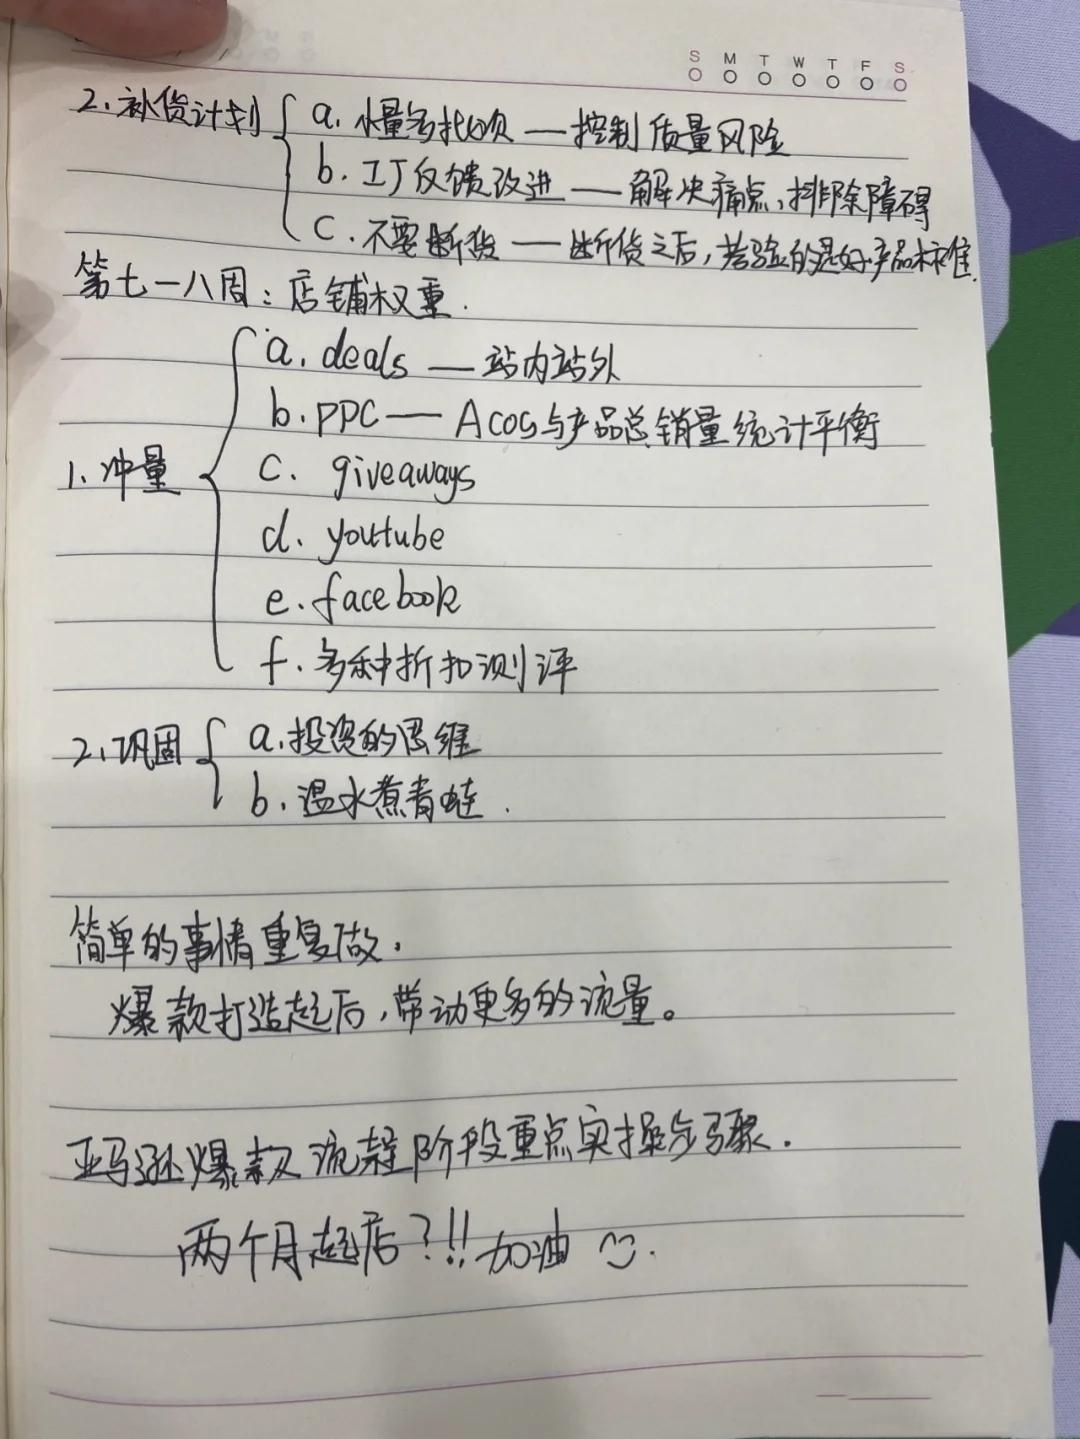 S M T W T F S
2. 补货计划
a. 小量多批次 — 控制质量风险
b. 工厂反馈改进 — 解决痛点、排除障碍
c. 不要断货 — 断货之后,考验的是好产品标准.
第七一八周: 店铺权重.
1. 冲量
a. deals — 站内站外
b. PPC — Acos与产品总销量统计平衡
c. giveaways
d. youtube
e. facebook
f. 多种折扣测评
2. 巩固
a. 投资的思维
b. 温水煮青蛙.
简单的事情重复做.
爆款打造起后,带动更多的流量。
亚马逊爆款流程阶段重点实操步骤.
两个月起店?!! 加油